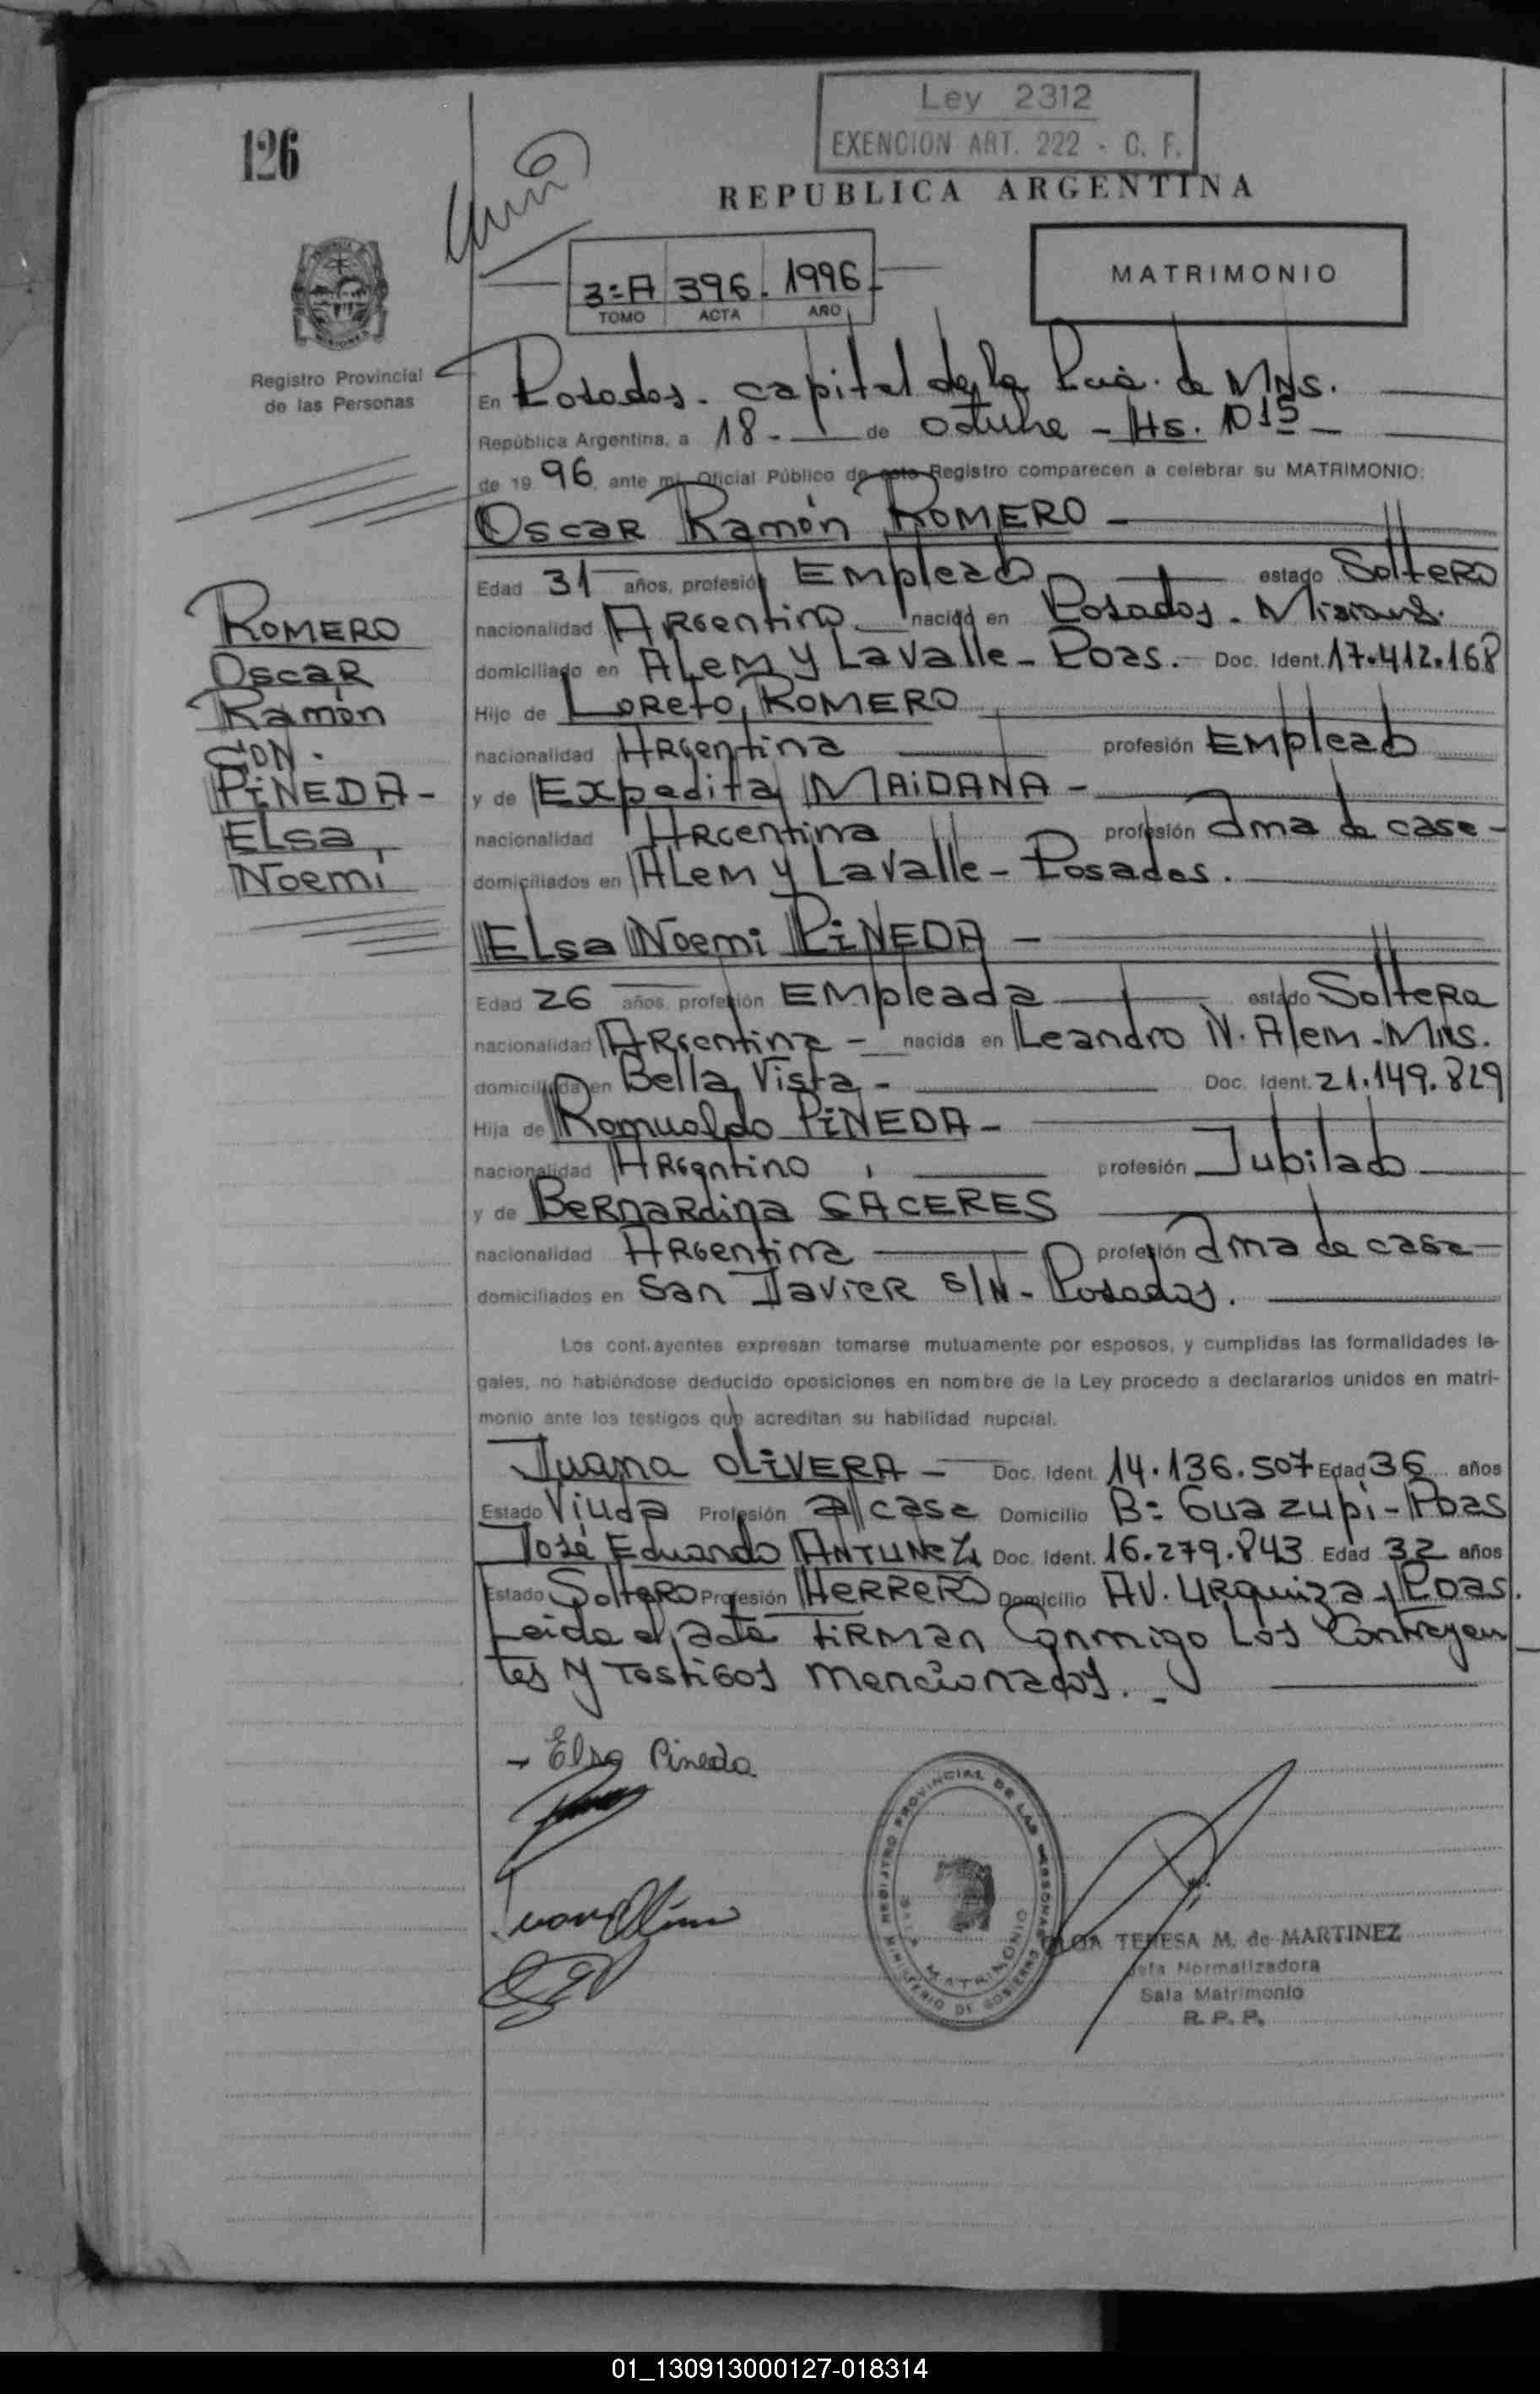 Ley 2312
EXENCION ART. 222 - C. F.
126
REPUBLICA ARGENTINA
MATRIMONIO
3=A 396. 1996
TOMO ACTA AÑO
Registro Provincial
de las Personas
En Posadas. capital de la Pcia. de MNS.
República Argentina, a 18 - de octubre - Hs. 10 15
de 19 96, ante mi, Oficial Público de este Registro comparecen a celebrar su MATRIMONIO:
Oscar Ramón ROMERO -
Edad 31 años, profesión Empleado estado Soltero
nacionalidad Argentino nacido en Posadas - Misiones.
domiciliado en Alem y Lavalle - Pdas. - Doc. Ident. 17.412.168
Hijo de Loreto ROMERO
nacionalidad Argentina profesión Empleado
y de Expedita MAIDANA -
nacionalidad Argentina profesión ama de casa -
domiciliados en Alem y Lavalle - Posadas.
ROMERO
Oscar
Ramón
CON.
PIÑEDA -
Elsa
Noemi
Elsa Noemi PIÑEDA -
Edad 26 años, profesión Empleada estado Soltera
nacionalidad Argentina - nacida en Leandro N. Alem - MNS.
domiciliada en Bella Vista - Doc. Ident. 21.149.829
Hija de Romualdo PIÑEDA -
nacionalidad Argentino profesión Jubilado
y de Bernardina CACERES
nacionalidad Argentina profesión ama de casa
domiciliados en San Javier S/N - Posadas.
Los cont.ayentes expresan tomarse mutuamente por esposos, y cumplidas las formalidades le-
gales, no habiéndose deducido oposiciones en nombre de la Ley procedo a declararlos unidos en matri-
monio ante los testigos que acreditan su habilidad nupcial.
Juana OLIVERA - Doc. Ident. 14.136.507 Edad 36 años
Estado Viuda Profesión a/ casa Domicilio B= Guazupi - Pdas
José Eduardo ANTUNEZ Doc. Ident. 16.279.843 Edad 32 años
Estado Soltero Profesión Herrero Domicilio AV. Urquiza - Pdas.
Leida el acta firman conmigo los Contrayen
tes y Testigos mencionados. -
- Elsa Pineda
REGISTRO PROVINCIAL DE LAS PERSONAS
MINISTERIO DE GOBIERNO
SALA MATRIMONIO
OLGA TERESA M. de MARTINEZ
Jefa Normalizadora
Sala Matrimonio
R. P. P.
01_130913000127-018314